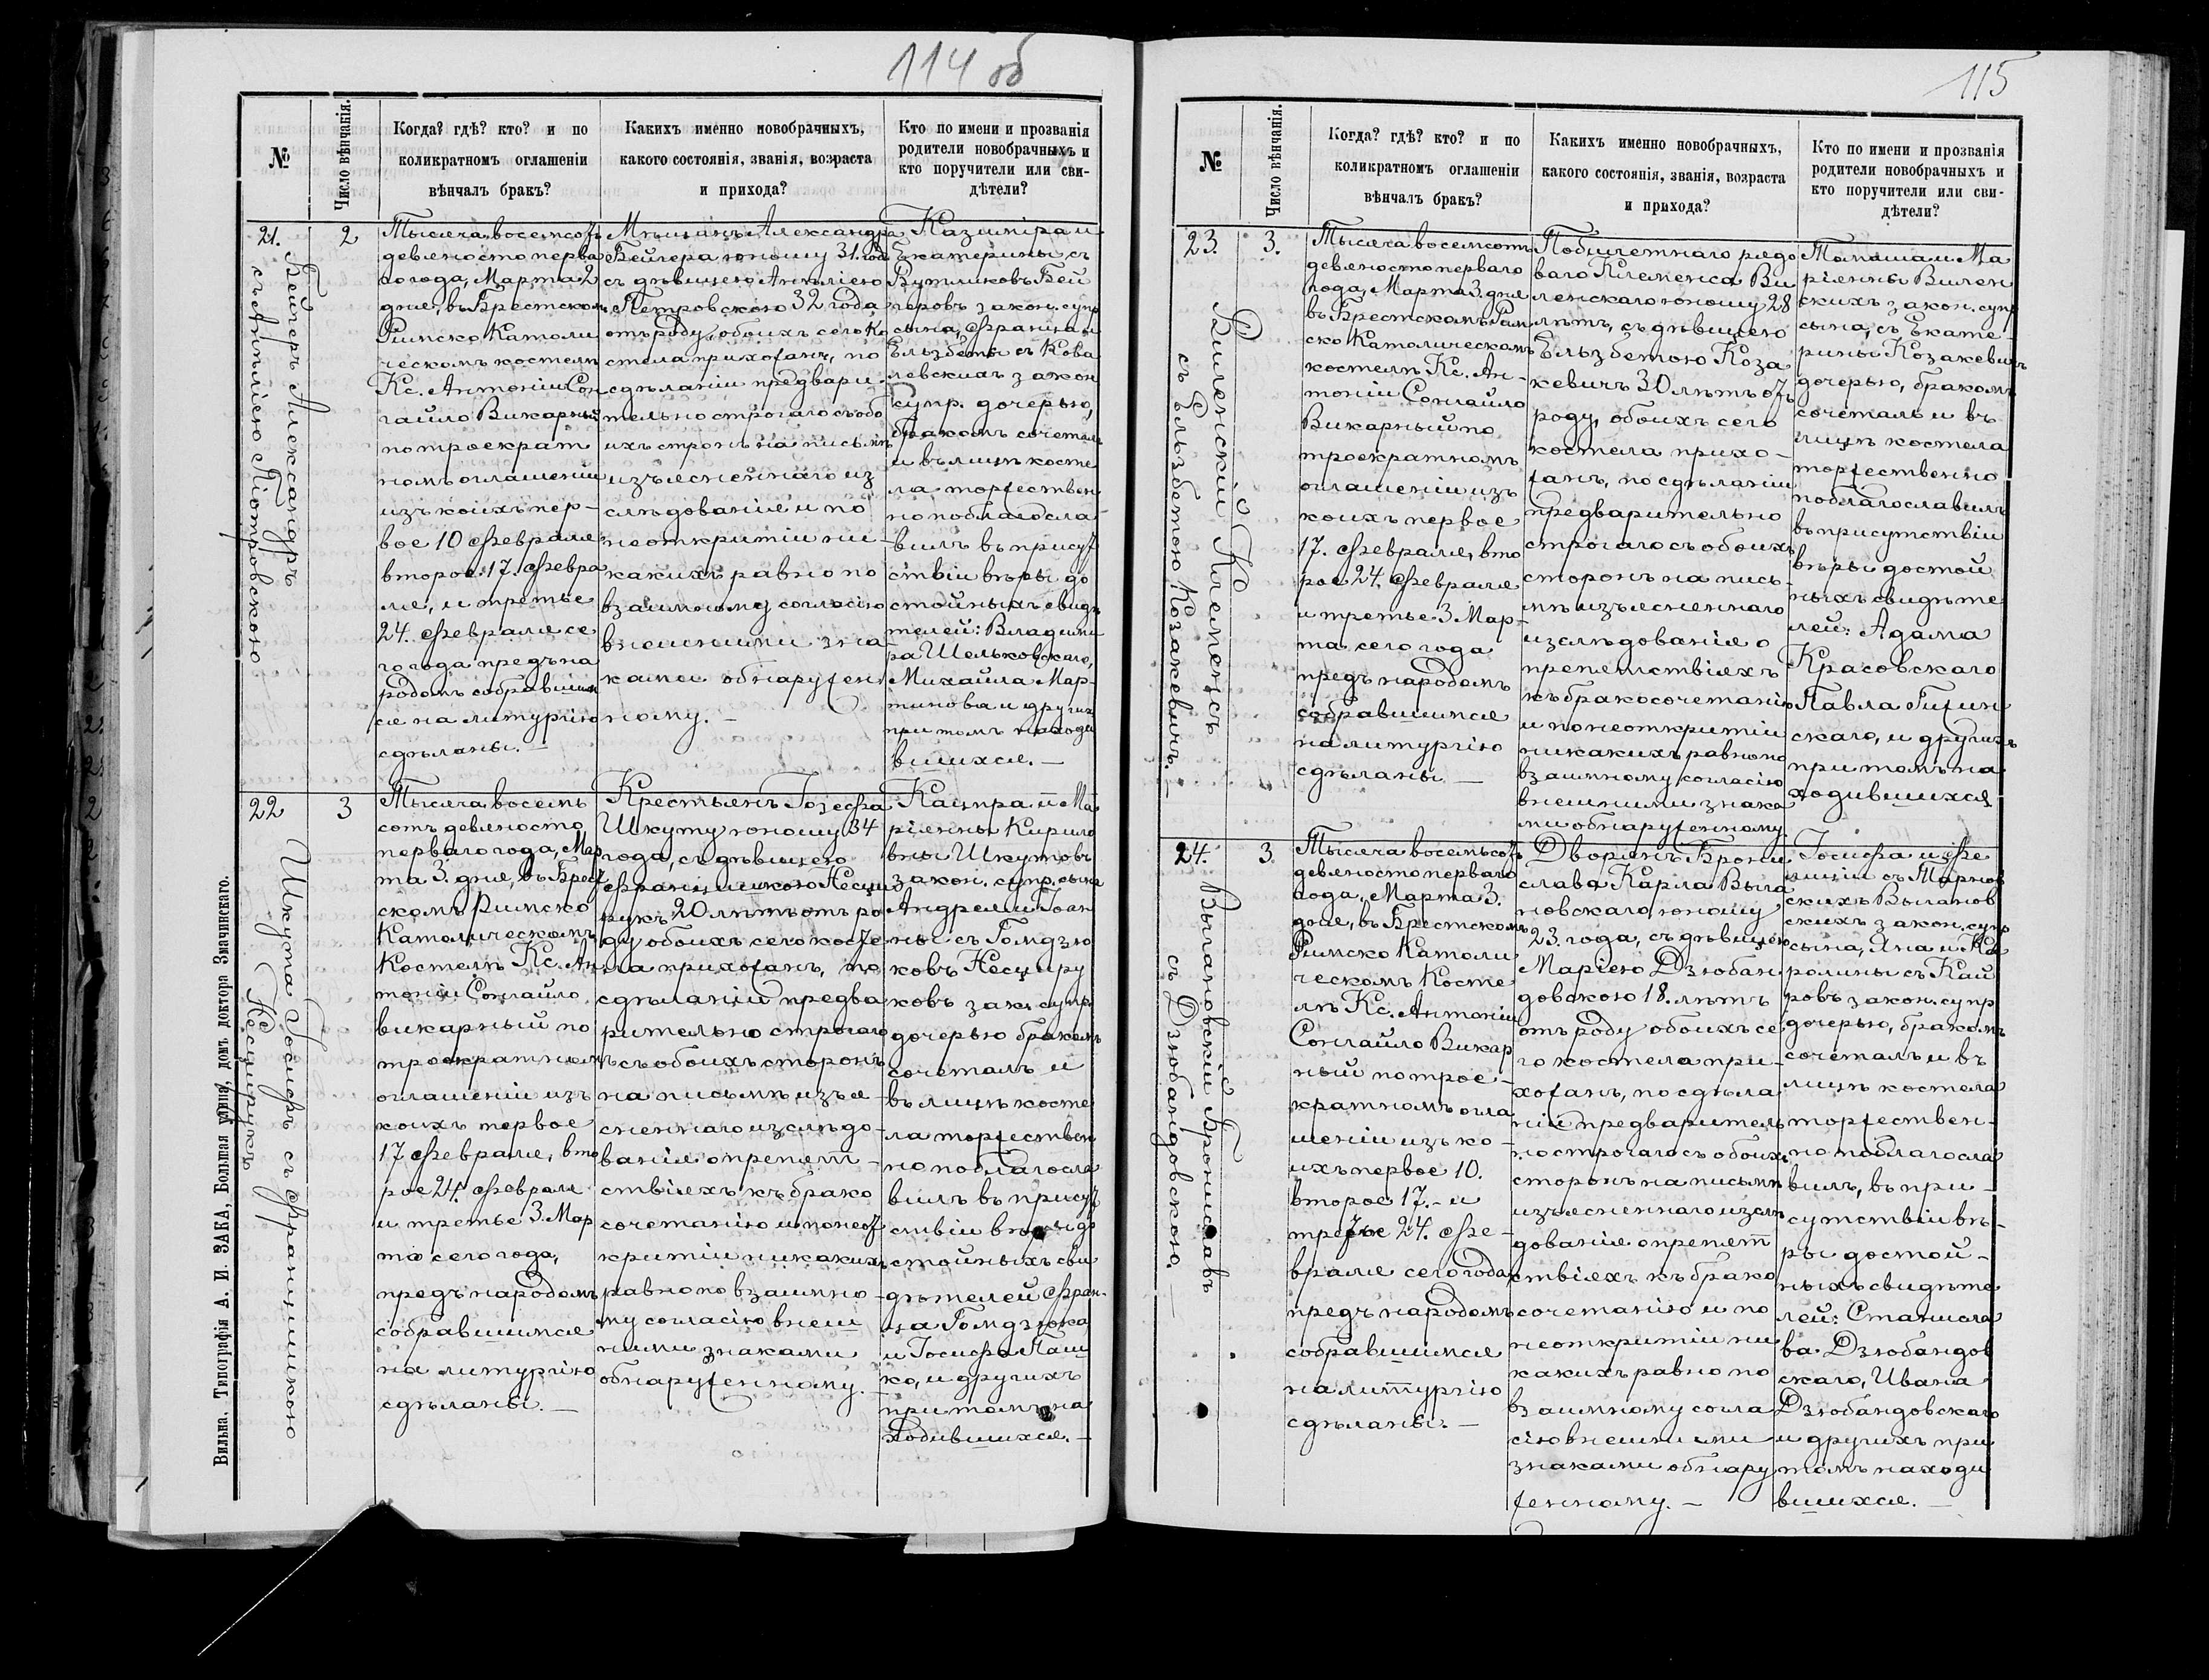 114 об
№
Число вѣнчанія.
Когда? гдѣ? кто? и по
коликратномъ оглашеніи
вѣнчалъ бракъ?
Какихъ именно новобрачныхъ,
какого состоянія, званія, возраста
и прихода?
Кто по имени и прозванія
родители новобрачныхъ и
кто поручители или сви-
дѣтели?
21.
Бейгеръ Александръ
съ Анѣліею Піотровскою
2
Тысяча восемсотъ
девяносто перва
го года, Марта 2
дня, въ Брестскомъ
Римско Католи
ческомъ костелѣ
Кс. Антоній Сон
гайло Викарный
по троекрат
номъ оглашеніи
изъ коихъ пер-
вое 10 Февраля
второе 17. Февра
ля, и третье
24. Февраля се
го года предъ на
родомъ собравшим
ся на литургію
сдѣланы. —
Мѣщанъ Александра
Бейгера юношу 31. год
съ дѣвицею Анѣліею
Петровскою 32 года
отъ роду, обоихъ сего Ко
стела прихожанъ, по
сдѣланіи предвари-
тельно строгаго съ обо
ихъ сторонъ на письмѣ
изъясненнаго из
слѣдованія и по
неоткрытіи ни-
какихъ равно по
взаимному согласію
внешними зна
ками обнаружен
ному. —
Казиміра и
Екатерины съ
Бей
геровъ закон. супр
сына, Франца и
Ельзбеты съ Кова
левскихъ закон
супр. дочерью,
бракомъ сочеталъ
и въ лицѣ косте
ла торжествен
но поблагосла-
вилъ въ присут
ствіи вѣры до
стойныхъ свидѣ
телей: Владими
ра Шельковскаго,
Михаила Мар-
тинова и другихъ
при томъ находи
вшихся. —
22
Шкута Іосифъ съ Францишкою
Несцирукъ
3
Тысяча восемь
сотъ девяносто
перваго года, Мар
та 3. дня, въ Брест
скомъ Римско
Католическомъ
Костелѣ Кс. Ан
тоній Сонгайло
викарный по
троекратномъ
оглашеніи изъ
коихъ первое
17 Февраля, вто
рое 24. Февраля
и третье 3. Мар
та сего года,
предъ народомъ
собравшимся
на литургію
сдѣланы. —
Крестьянъ Іозефа
Шкуту юношу 34
года, съ дѣвицею
Францишкою Несци
рукъ 20 лѣтъ отъ ро
ду обоихъ сего косте
ла прихожанъ, по
сдѣланіи предва
рительно строгаго
съ обоихъ сторонъ
на письмѣ изъя-
сненнаго изслѣдо-
ванія о препят-
ствіяхъ къ брако
сочетанію и по неот
крытіи никакихъ
равно по взаимно-
му согласію внеш
ними знаками
обнаруженному.
Каспра и Ма
ріянны Кирило
вны Шкутовъ
закон. супр. сына
Андрея и Іоан
ны съ Гомдзю
ковъ Несциру
ковъ зак. супр.
дочерью бракомъ
сочеталъ и
въ лицѣ косте
ла торжествен
но поблагосла
вилъ въ присут
ствіи вѣры до
стойныхъ сви
дѣтелей Фран-
ца Гомдзюка,
и Іосифа Паш
ко, и другихъ
при томъ на
ходившихся. —
Вильна. Типографія А. И. ЗАКА, Большая улица, домъ доктора Змачинскаго.
115
№
Число вѣнчанія.
Когда? гдѣ? кто? и по
коликратномъ оглашеніи
вѣнчалъ бракъ?
Какихъ именно новобрачныхъ,
какого состоянія, званія, возраста
и прихода?
Кто по имени и прозванія
родители новобрачныхъ и
кто поручители или сви-
дѣтели?
23.
Виленскій Клеменсъ
съ Ельзбетою Козакевичъ. —
3.
Тысяча восемсотъ
девяносто перваго
года, Марта 3. дня
въ Брестскомъ Рим
ско Католическомъ
костелѣ Кс. Ан-
тоній Сонгайло
Викарный по
троекратномъ
оглашеніи изъ
коихъ первое
17. Февраля, вто
рое 24. Февраля
и третье 3 Мар-
та сего года
предъ народомъ
собравшимся
на литургію
сдѣланы —
Побилетнаго рядо
ваго Клеменса Ви
ленскаго юношу 28
лѣтъ, съ дѣвицею
Ельзбетою Коза
кевичъ 30 лѣтъ отъ
роду, обоихъ сего
костела прихо-
жанъ, по сдѣланіи
предварительно
строгаго съ обоихъ
сторонъ на пись-
мѣ изъясненнаго
изслѣдованія о
препятствіяхъ
къ бракосочетанію
и по неоткрытіи
никакихъ равно по
взаимному согласію
внешними знака
ми обнаруженному.
Томаша и Ма
ріянны Вилен
скихъ закон. супр
сына, съ Екате-
рины Козакевичъ
дочерью, бракомъ
сочеталъ и въ
лицѣ костела
торжественно
поблагославилъ
въ присутствіи
вѣры достой
ныхъ свидѣте
лей: Адама
Красовскаго
Павла Гижин
скаго, и другихъ
при томъ на
ходившихся
24.
Выгановскій Брониславъ
съ Дзюбандовскою. —
3.
Тысяча восемьсотъ
девяносто перваго
года, Марта 3.
дня, въ Брестскомъ
Римско Католи
ческомъ Косте
лѣ Кс. Антоній
Сонгайло Викар
ный по трое-
кратномъ огла
шеніи изъ ко-
ихъ первое 10.
второе 17. - и
третье 24. Фе-
враля сего года
предъ народомъ
собравшимся
на литургію
сдѣланы. —
Дворянъ Брони
слава Карла Выга
новскаго, юношу
23. года, съ дѣвицею
Маріею Дзюбан
довскою 18. лѣтъ
отъ роду обоихъ се
го костела при-
хожанъ, по сдѣла
ніи предваритель
но строгаго съ обоихъ
сторонъ на письмѣ
изъясненнаго изслѣ
дованія о препят
ствіяхъ къ брако
сочетанію и по
неоткрытіи ни
какихъ равно по
взаимному согла
сію внешними
знаками обнару
женному. —
Іосифа и Фе
лиціи съ Тарнов
скихъ Выганов
скихъ закон. супр
сына, Яна и Ка
ролины съ Кай
ровъ закон. супр
дочерью, бракомъ
сочеталъ и въ
лицѣ костела
торжествен-
но поблагосла
вилъ, въ при-
сутствіи вѣ-
ры достой-
ныхъ свидѣте
лей: Станисла
ва Дзюбандов
скаго, Ивана
Дзюбандовскаго
и другихъ при
томъ находи
вшихся. —